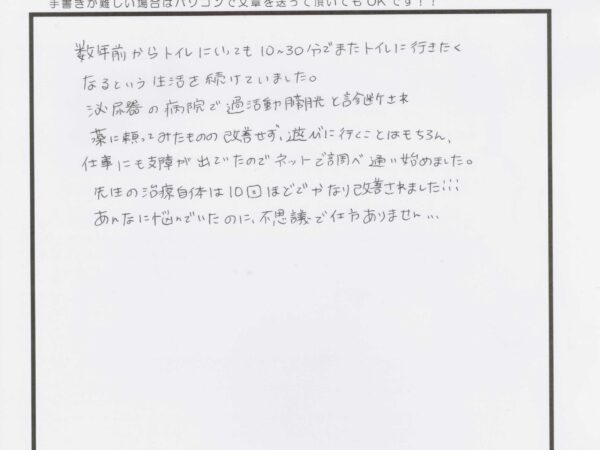 手書きが難しい場合はパソコンで文章を送って頂いてもOKです！！
数年前からトイレにいっても10~30分でまたトイレに行きたく
なるという生活を続けていました。
泌尿器の病院で過活動膀胱と診断され
薬に頼ってみたものの改善せず、遊びに行くことはもちろん、
仕事にも支障が出ていたのでネットで調べ通い始めました。
先生の治療自体は10回ほどでかなり改善されました!!!
あんなに悩んでいたのに、不思議で仕方ありません…